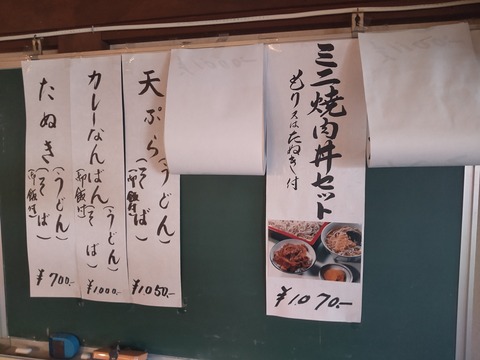 ミニ焼肉丼セット
もり又はたぬき付
¥1070.-
天ぷら(うどん)(そば)
(卵飯付)
¥1050.-
カレーなんばん(うどん)(そば)
(卵飯付)
¥1000.-
たぬき(うどん)(そば)
(卵飯付)
¥700.-